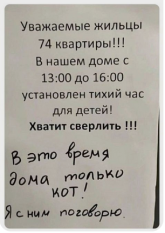 Уважаемые жильцы
74 квартиры!!!
В нашем доме с
13:00 до 16:00
установлен тихий час
для детей!
Хватит сверлить !!!
В это время
дома только
кот!
Я с ним поговорю.